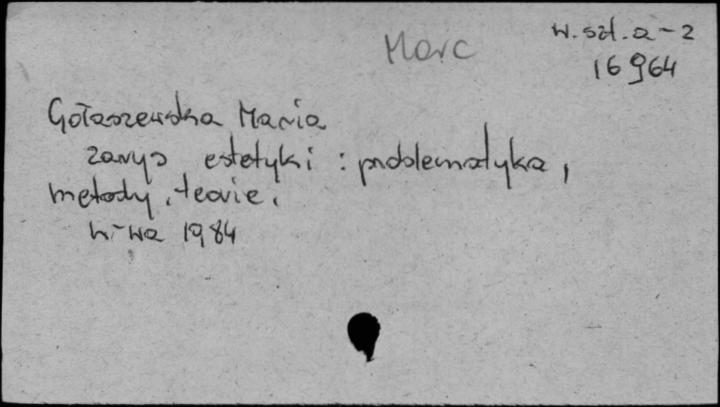 Marc
w. szt. a-2
16 964
Gołaszewska Maria
zarys estetyki : problematyka,
metody, teorie.
W-wa 1984